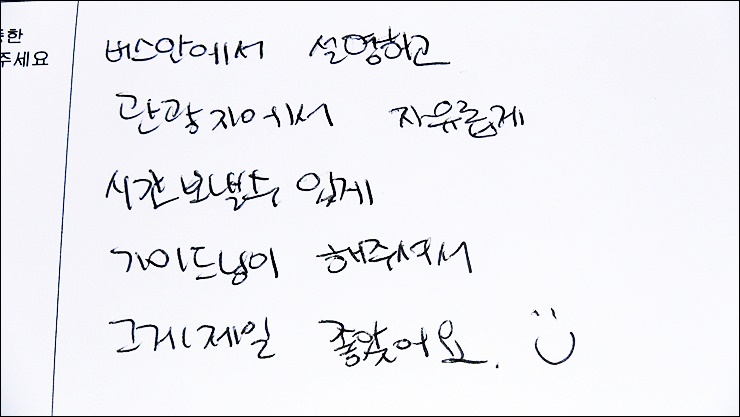 한
주세요
버스안에서 설명하고
관광지에서 자유롭게
시간보낼수 있게
가이드님이 해주셔서
그게 제일 좋았어요.